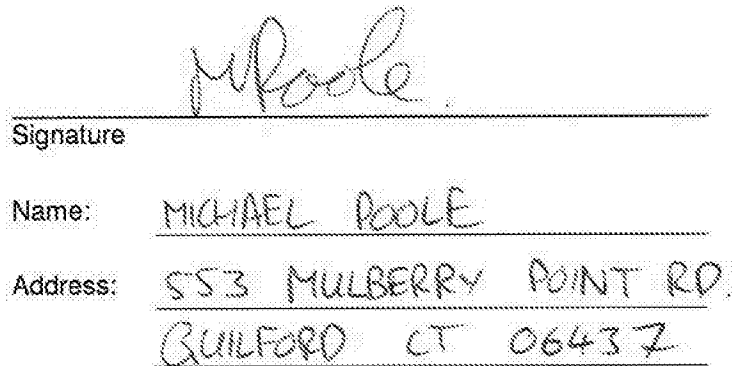 MPoole.
Signature
Name: MICHAEL POOLE
Address: 553 MULBERRY POINT RD.
GUILFORD CT 06437